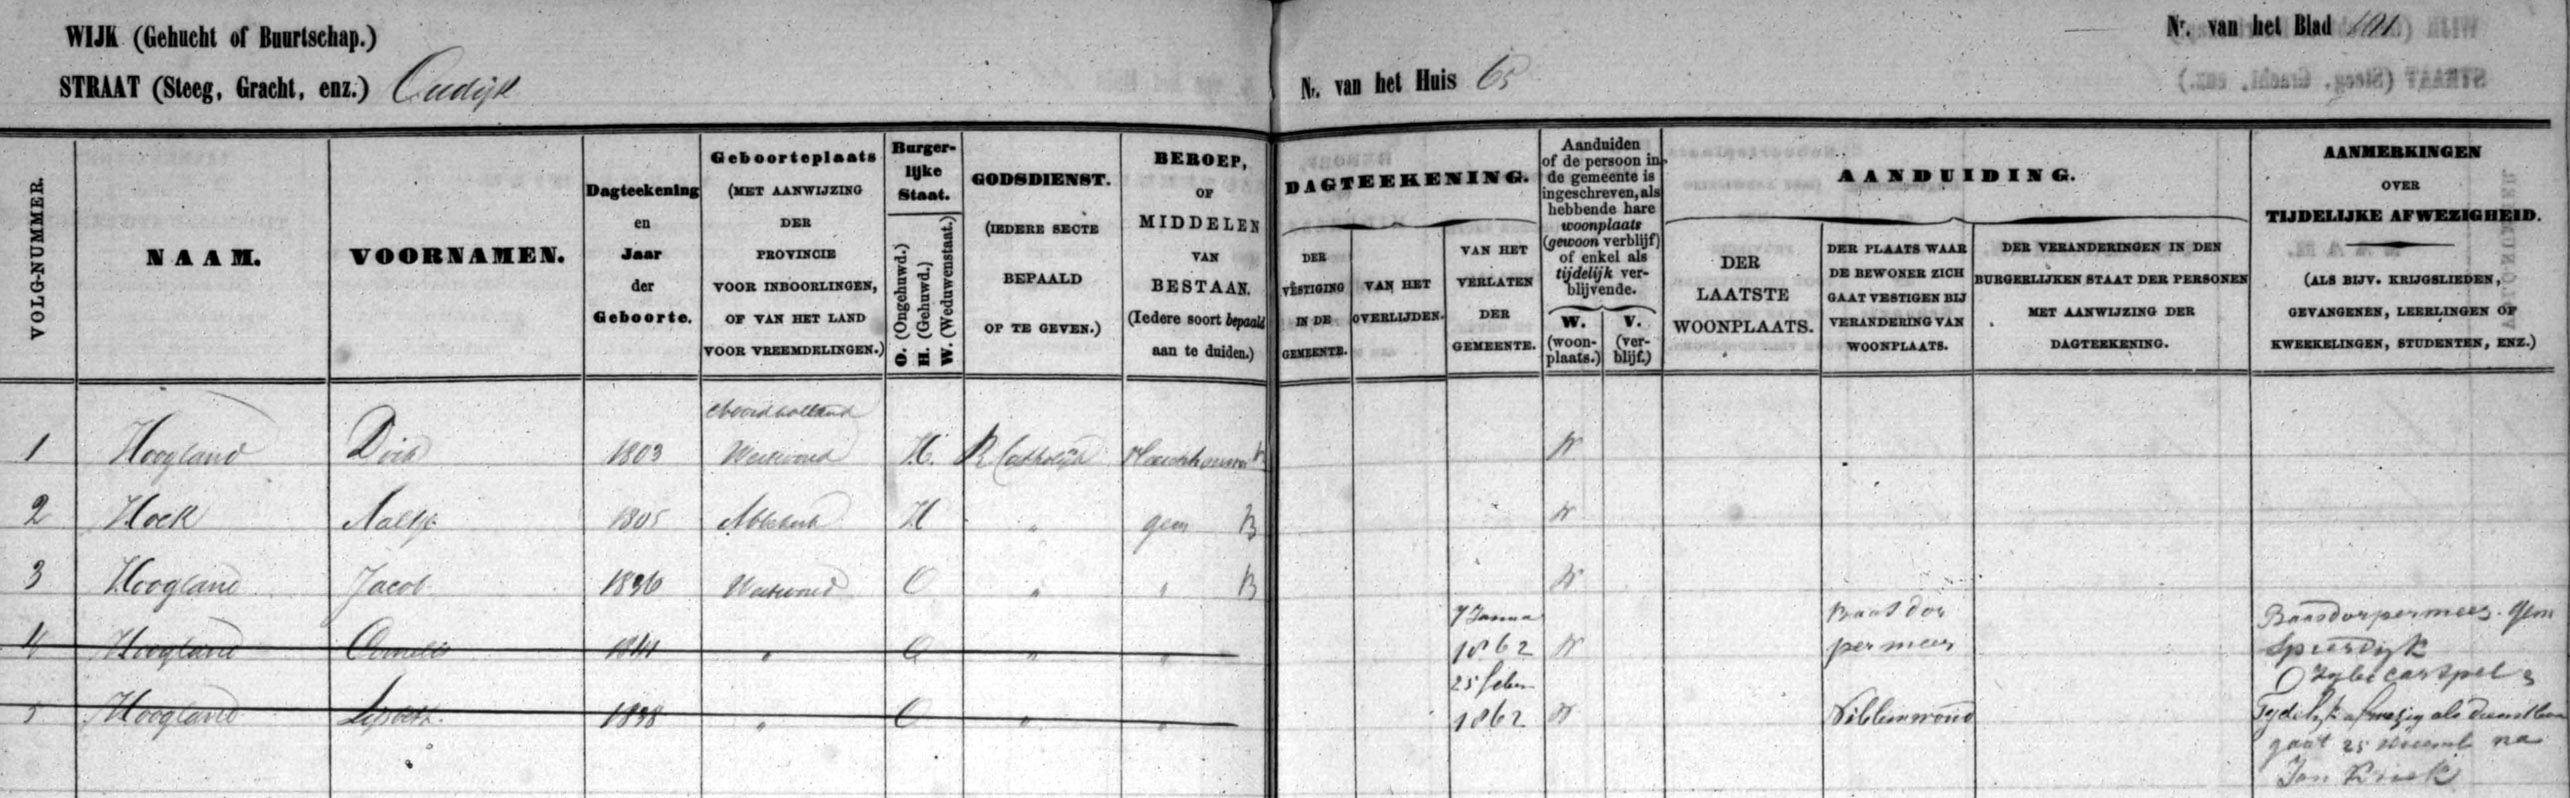 WIJK (Gehucht of Buurtschap.)
STRAAT (Steeg, Gracht, enz.) Oudijk
Nr. van het Huis 65
Nr. van het Blad 101
VOLG-NUMMER.
NAAM.
VOORNAMEN.
Dagteekening
en
Jaar
der
Geboorte.
Geboorteplaats
(MET AANWIJZING
DER
PROVINCIE
VOOR INBOORLINGEN,
OF VAN HET LAND
VOOR VREEMDELINGEN.)
Burger-
lijke
Staat.
O. (Ongehuwd.)
H. (Gehuwd.)
W. (Weduwenstaat.)
GODSDIENST.
(IEDERE SECTE
BEPAALD
OP TE GEVEN.)
BEROEP,
OF
MIDDELEN
VAN
BESTAAN.
(Iedere soort bepaald
aan te duiden.)
DAGTEEKENING.
DER
VESTIGING
IN DE
GEMEENTE.
VAN HET
OVERLIJDEN.
VAN HET
VERLATEN
DER
GEMEENTE.
Aanduiden
of de persoon in
de gemeente is
ingeschreven, als
hebbende hare
woonplaats
(gewoon verblijf)
of enkel als
tijdelijk ver-
blijvende.
W.
(woon-
plaats.)
V.
(ver-
blijf.)
AANDUIDING.
DER
LAATSTE
WOONPLAATS.
DER PLAATS WAAR
DE BEWONER ZICH
GAAT VESTIGEN BIJ
VERANDERING VAN
WOONPLAATS.
DER VERANDERINGEN IN DEN
BURGERLIJKEN STAAT DER PERSONEN
MET AANWIJZING DER
DAGTEEKENING.
AANMERKINGEN
OVER
TIJDELIJKE AFWEZIGHEID.
(ALS BIJV. KRIJGSLIEDEN,
GEVANGENEN, LEERLINGEN OF
KWEEKELINGEN, STUDENTEN, ENZ.)
Noordholland
1 Hoogland Dirk 1803 Westwoud H. R Catholijk B W
2 Hoek Aaltje 1805 Abbekerk H " gem B W
3 Hoogland Jacob 1836 Westwoud O " " B W
7 Janua Baasdor Baasdorpermeer. gem
4 Hoogland Cornelis 1841 " O " " 1862 W permeer Spierdijk
25 febr
5 Hoogland Lijsbeth. 1838 " O " " 1862 W Sibbenwoud Tijdelijk afwezig als dienstbare
gaat 25 na
Jan